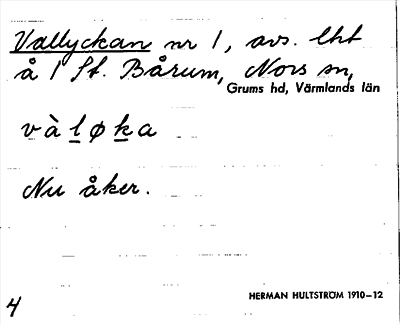 Vallyckan nr 1, avs. lht
å 1 St. Bårum, Nors sn,
Grums hd, Värmlands län
vàløka
Nu åker.
HERMAN HULTSTRÖM 1910–12
4